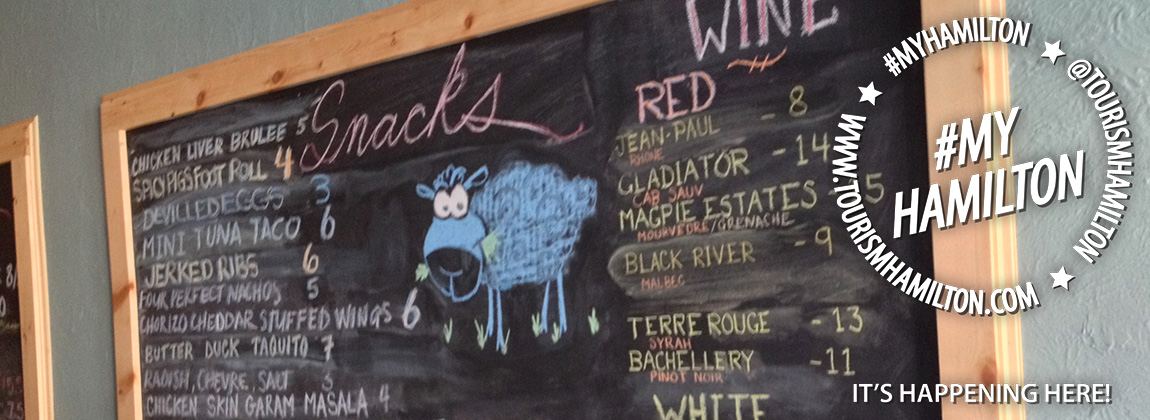 Snacks
CHICKEN LIVER BRULEE 5
SPICY PIGS FOOT ROLL 4
DEVILLED EGGS 3
MINI TUNA TACO 6
JERKED RIBS 6
FOUR PERFECT NACHOS 5
CHORIZO CHEDDAR STUFFED WINGS 6
BUTTER DUCK TAQUITO 7
RADISH, CHEVRE, SALT 3
CHICKEN SKIN GARAM MASALA 4
WINE
RED
JEAN-PAUL - 8
RHONE
GLADIATOR - 14
CAB SAUV
MAGPIE ESTATES 5
MOURVEDRE/GRENACHE
BLACK RIVER - 9
MALBEC
TERRE ROUGE - 13
SYRAH
BACHELLERY - 11
PINOT NOIR
WHITE
#MYHAMILTON
@TOURISMHAMILTON
WWW.TOURISMHAMILTON.COM
#MY
HAMILTON
IT'S HAPPENING HERE!